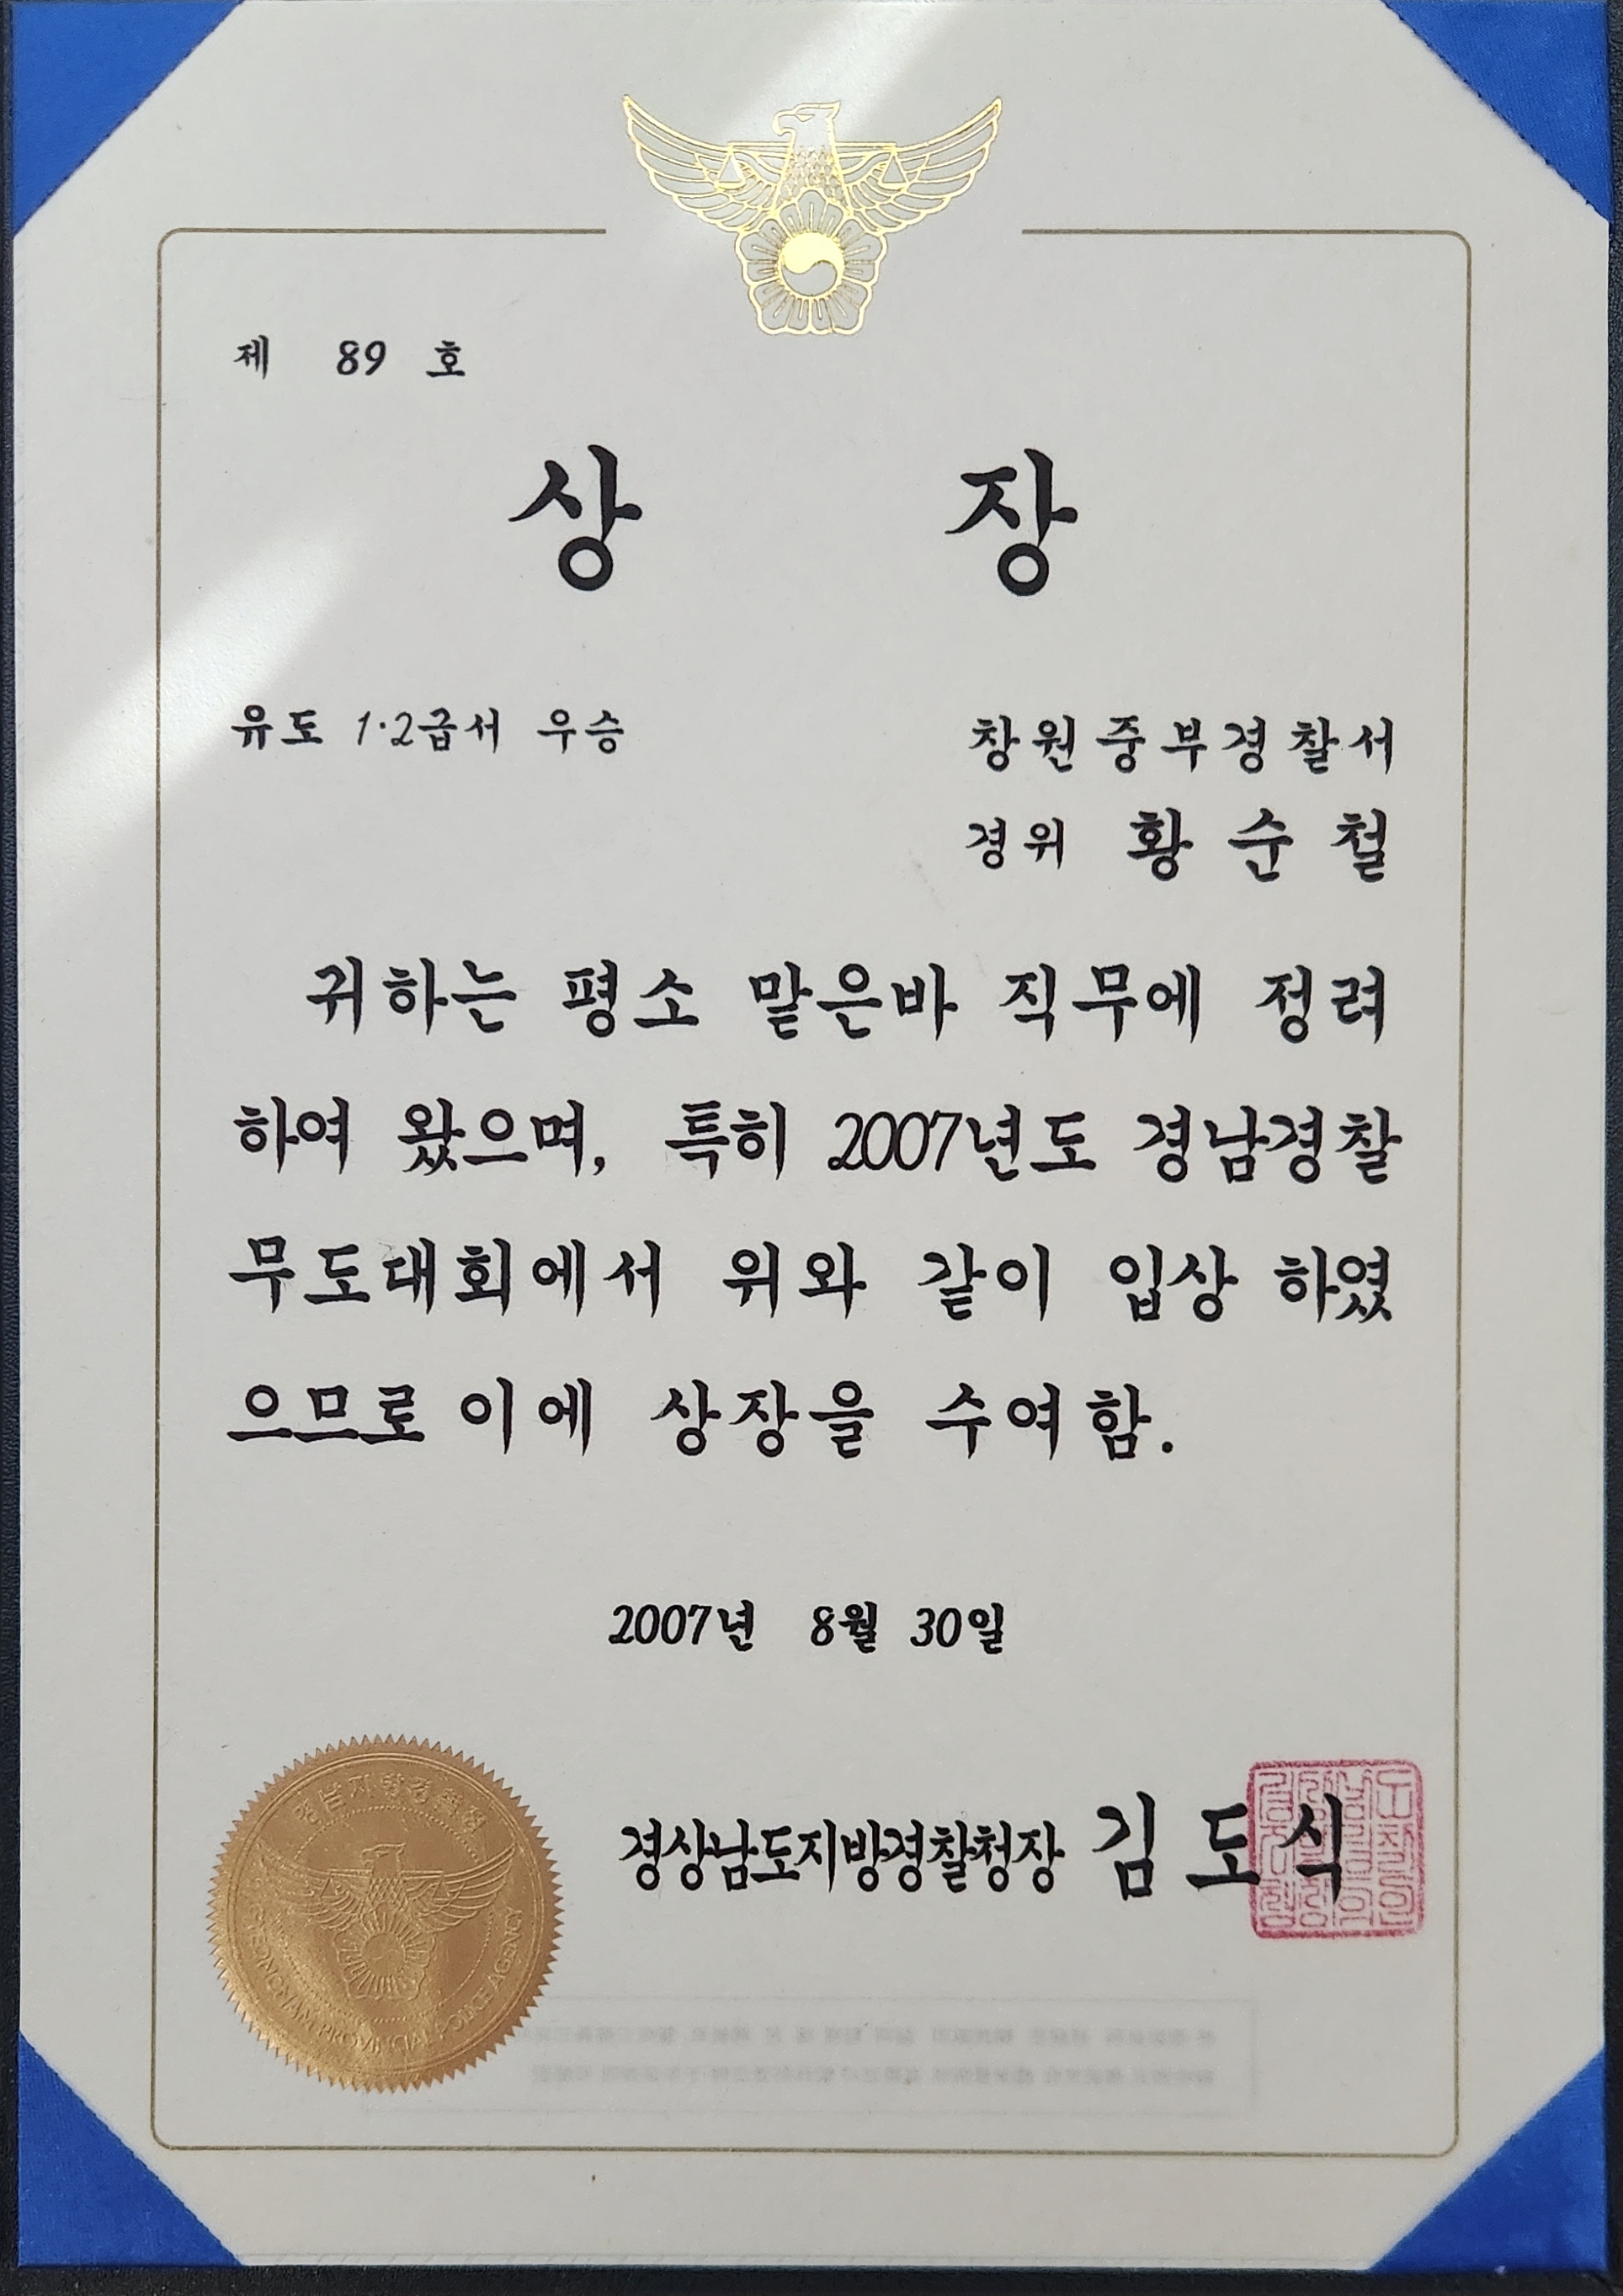 제 89 호
상 장
유도 1·2급서 우승
창원중부경찰서
경위 황순철
귀하는 평소 맡은바 직무에 정려
하여 왔으며, 특히 2007년도 경남경찰
무도대회에서 위와 같이 입상 하였
으므로 이에 상장을 수여함.
2007년 8월 30일
경상남도지방경찰청장 김도식
경남지방경찰청
GYEONGNAM PROVINCIAL POLICE AGENCY